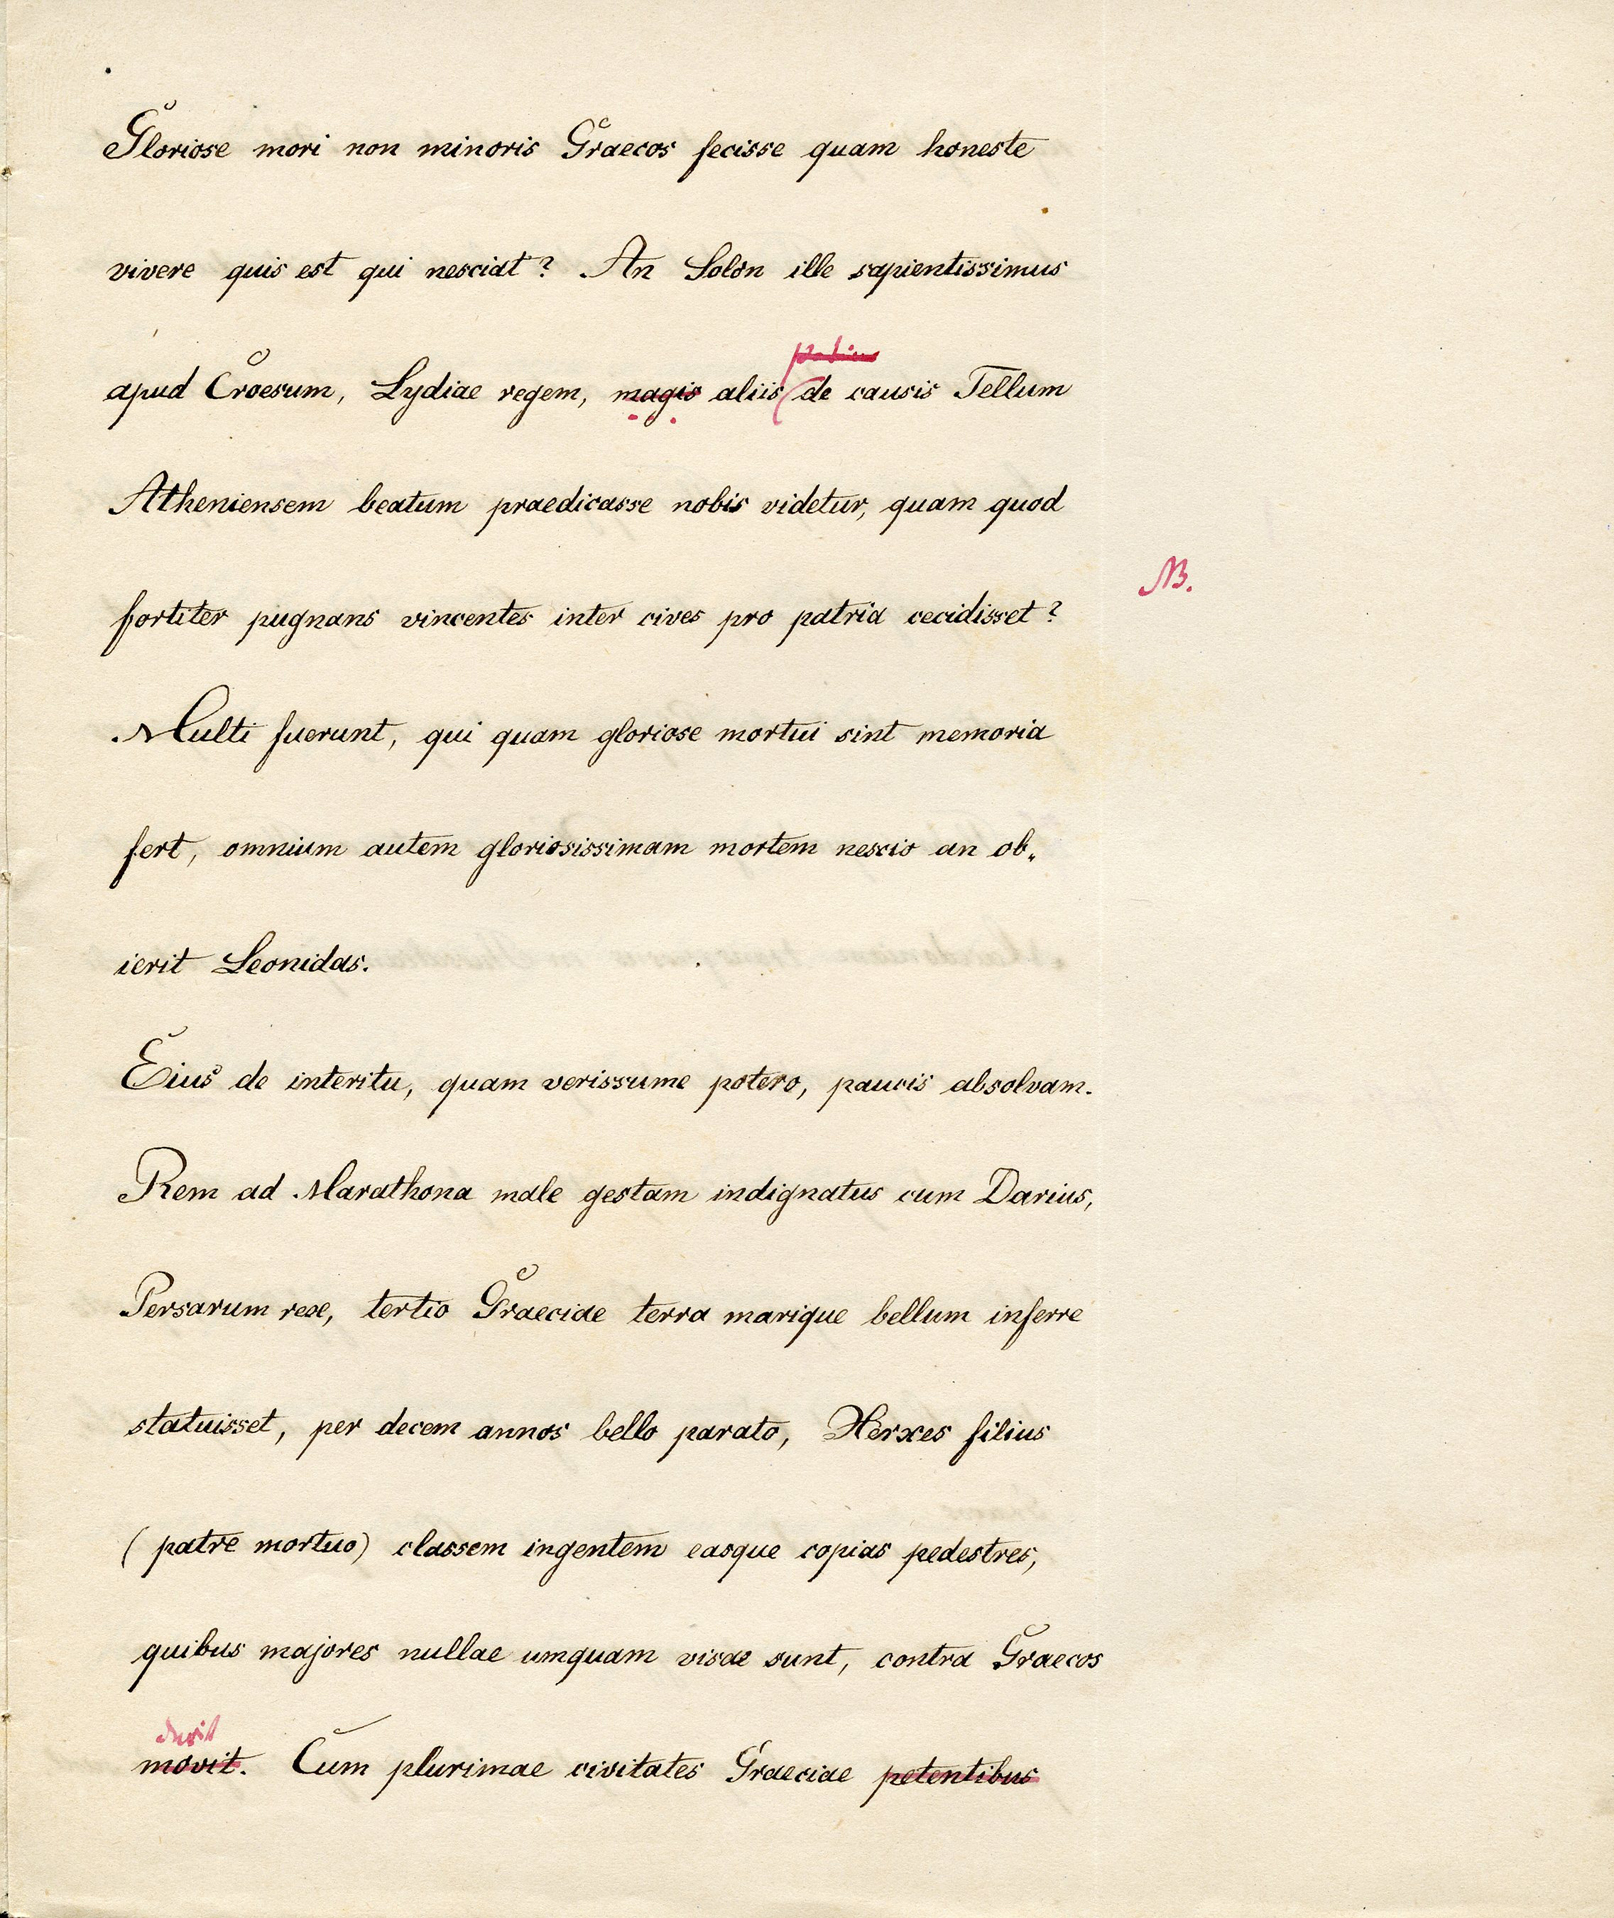 Gloriose mori non minoris Graecos fecisse quam honeste
vivere quis est qui nesciat? An Solon ille sapientissimus
potius
apud Croesum, Lydiae regem, magis aliis de causis Tellum
Atheniensem beatum praedicasse nobis videtur, quam quod
NB.
fortiter pugnans vincentes inter cives pro patria cecidisset?
Multi fuerunt, qui quam gloriose mortui sint memoria
fert, omnium autem gloriosissimam mortem nescio an ob„
ierit Leonidas.
Eius de interitu, quam verissume potero, paucis absolvam.
Rem ad Marathona male gestam indignatus cum Darius,
Persarum rex, tertio Graeciae terra marique bellum inferre
statuisset, per decem annos bello parato, Xerxes filius
(patre mortuo) classem ingentem easque copias pedestres,
quibus majores nullae umquam visae sunt, contra Graecos
duxit
movit. Cum plurimae civitates Graeciae petentibus